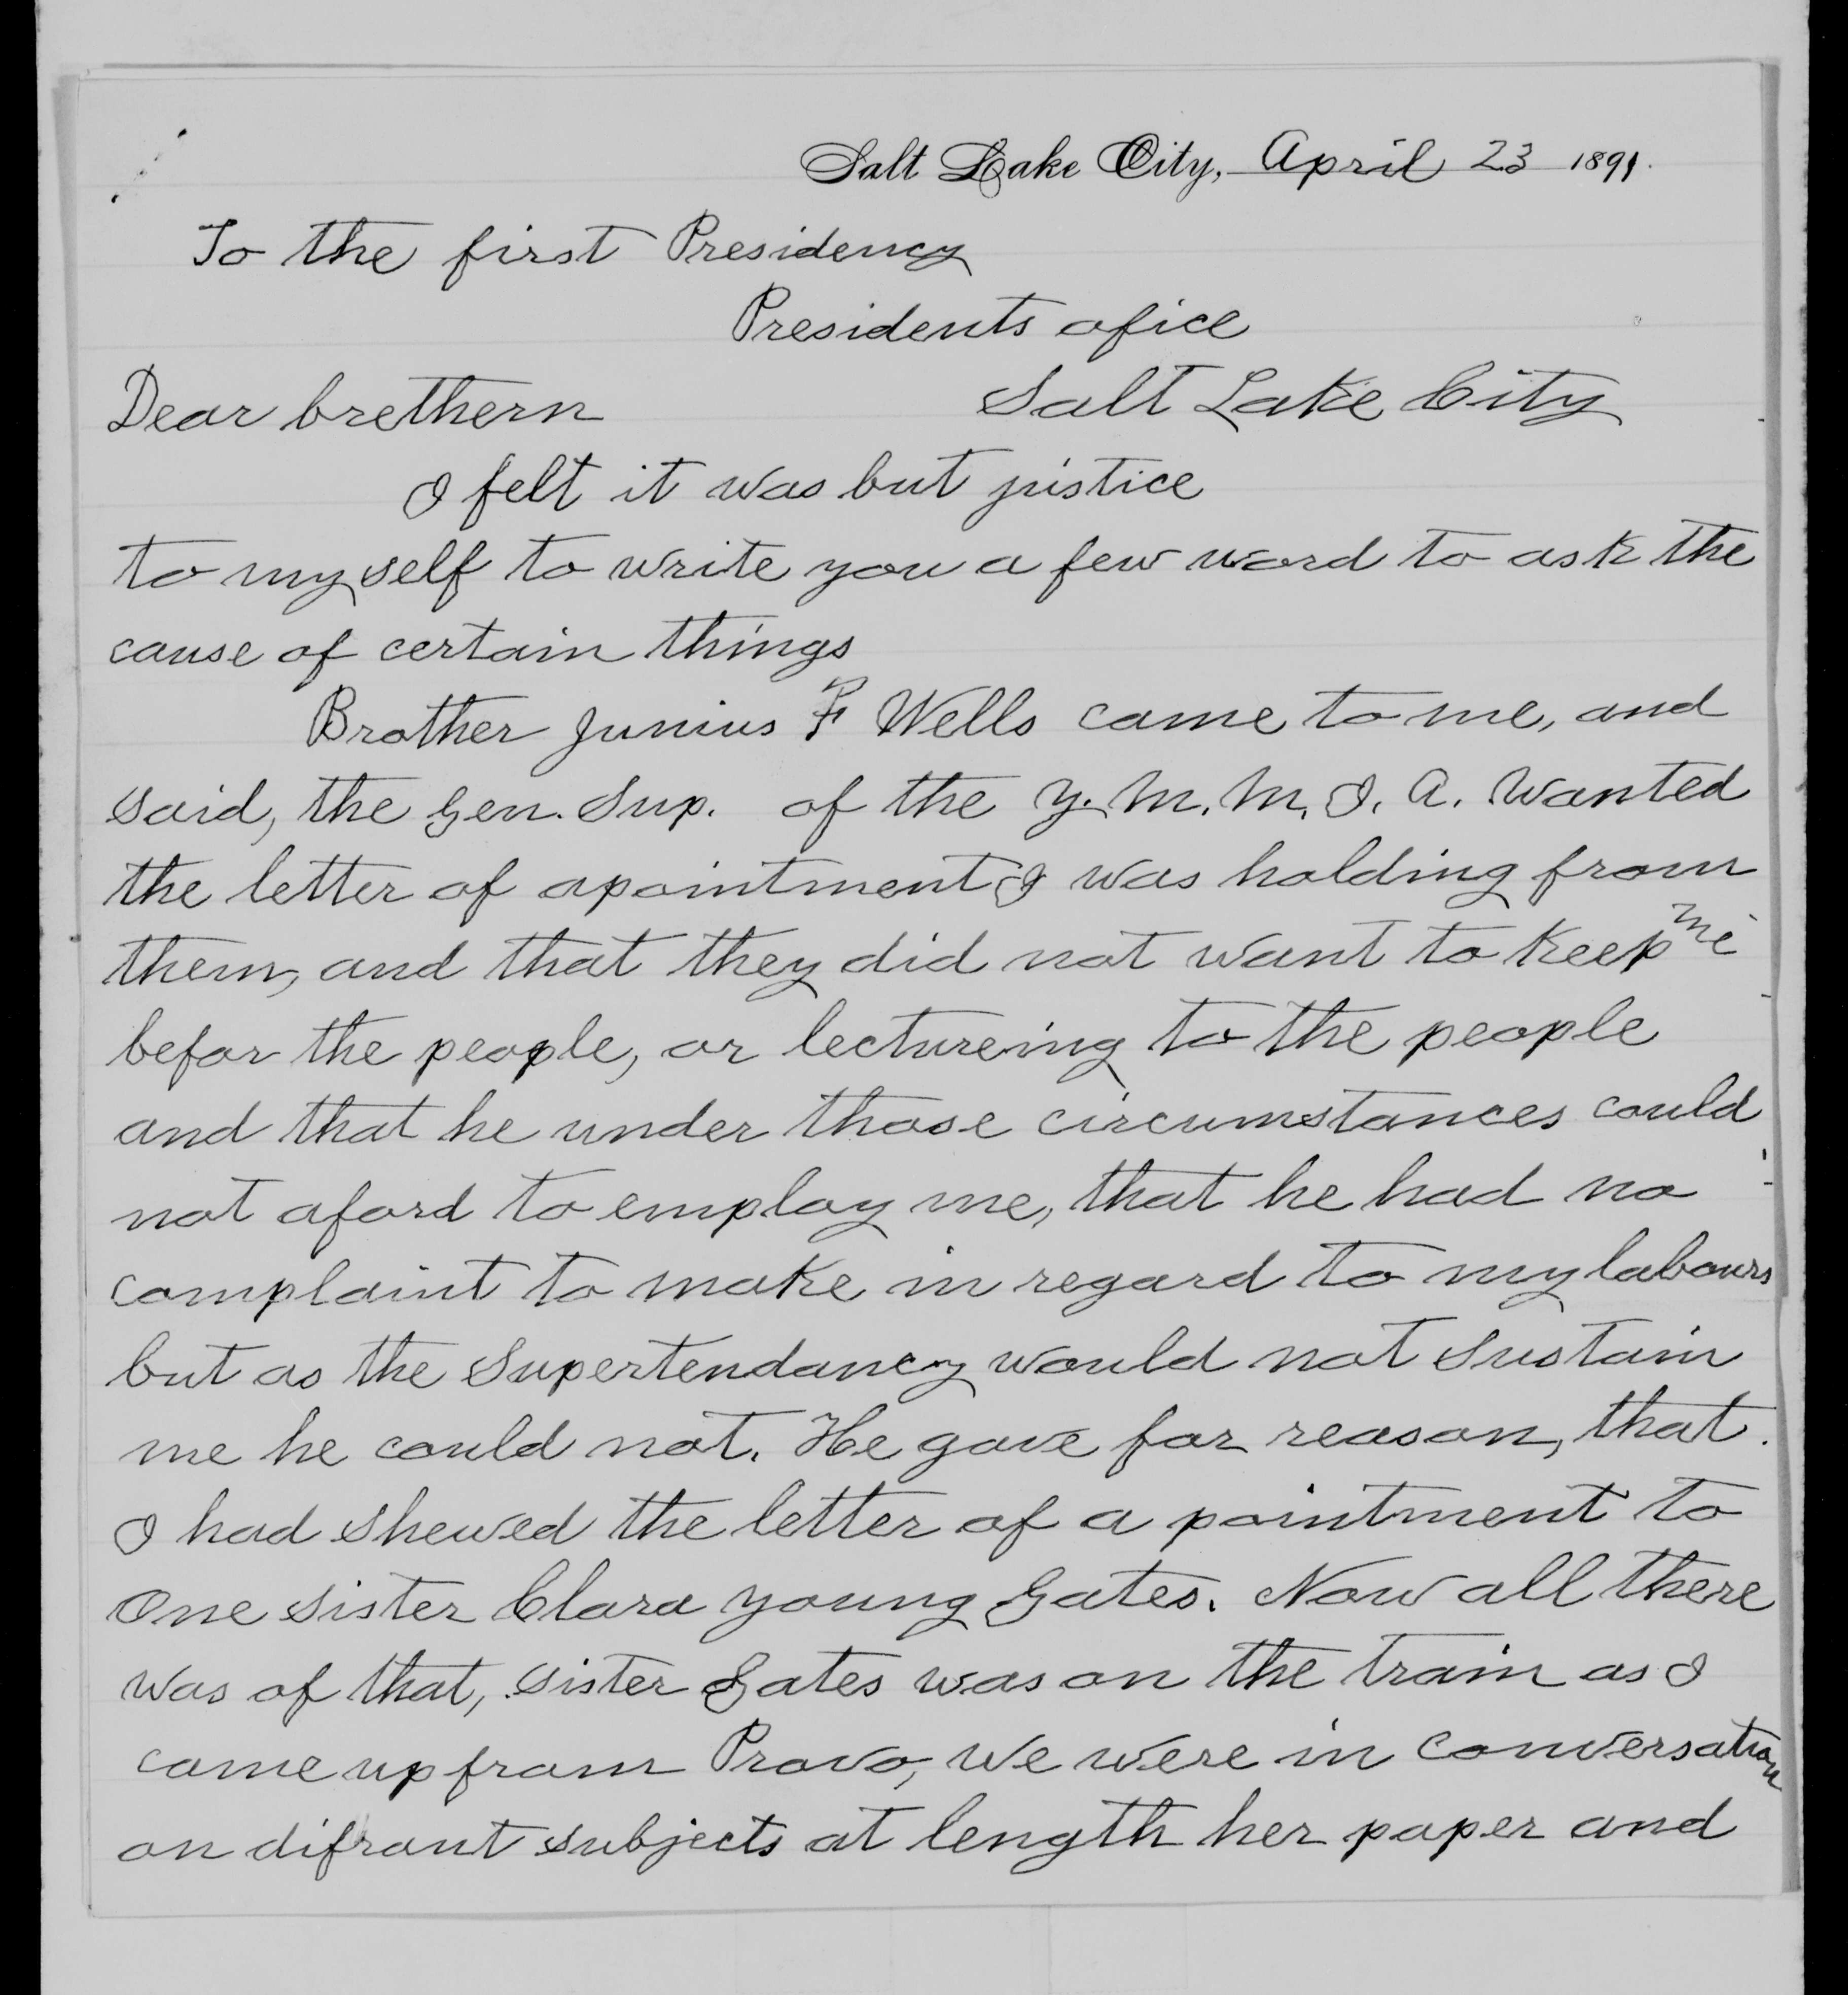 Salt Lake City, April 23 1891.
To the first Presidency
Presidents ofice
Salt Lake City
Dear brethern
I felt it was but justice
to myself to write you a few word to ask the
cause of certain things
Brother Junius F Wells came to me, and
said, the Gen. Sup. of the Y. M. M. I. A. Wanted
the letter of apointment I was holding from
them, and that they did not want to keep me
befor the people, or lectureing to the people
and that he under those circumstances could
not aford to employ me, that he had no
complaint to make in regard to my labours
but as the Supertendancy would not sustain
me he could not. He gave for reason, that
I had shewed the letter of a pointment to
One sister Clara young Gates. Now all there
was of that, sister Gates was on the train as I
came up from Provo, we were in conversation
on difrant subjects at length her paper and